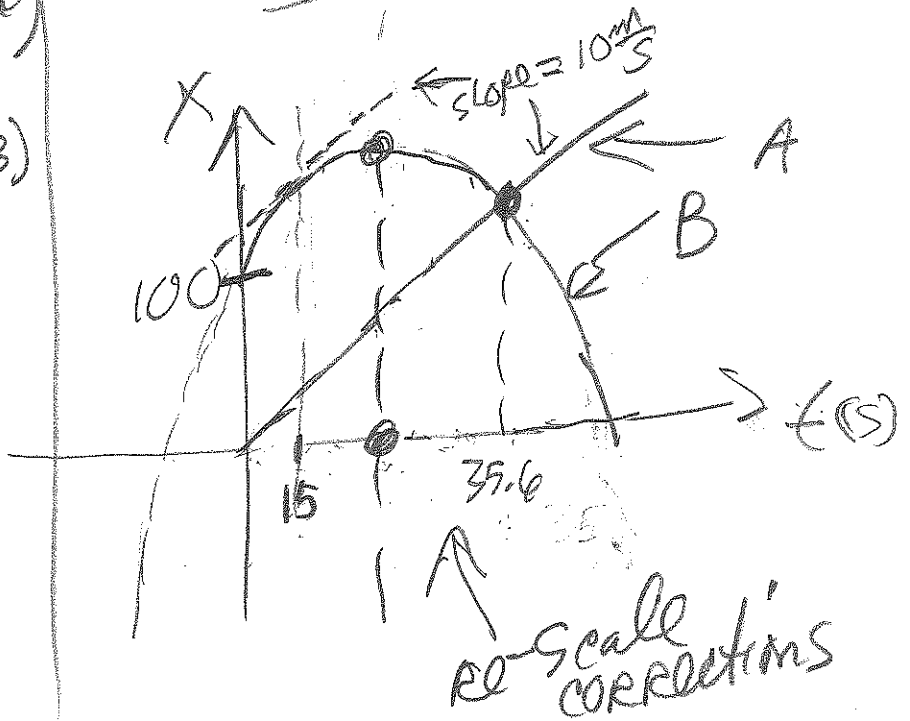 slope = 10 m/s
X
A
3)
B
100
t (s)
15
35.6
Re-Scale
corrections